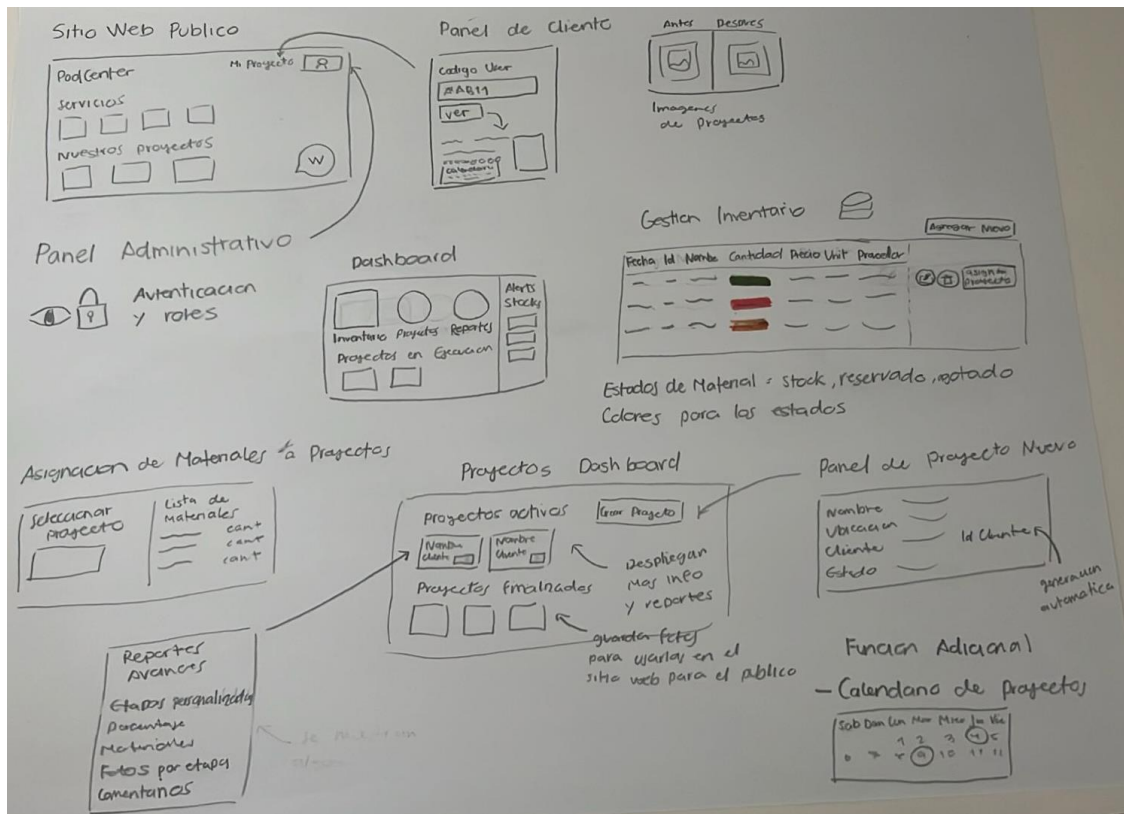 Sitio Web Publico
PoolCenter
Mi Proyecto
Servicios
Nuestros proyectos
W
Panel de Cliente
Codigo User
#AB11
ver
Calendario
Antes Despues
Imagenes
de Proyectos
Panel Administrativo
Autenticacion
y roles
Dashboard
Inventario Proyectos Reportes
Proyectos en Ejecucion
Alerts
Stocks
Gestion Inventario
Agregar Nuevo
Fecha Id Nombre Cantidad Precio Unit Proveedor
asignar
proyecto
Estados de Material = stock, reservado, agotado
Colores para los estados
Asignacion de Materiales a Proyectos
Seleccionar
proyecto
Lista de
Materiales
cant
cant
cant
Proyectos Dashboard
Proyectos activos
Crear Proyecto
Nombre
Cliente
Nombre
Cliente
Desplegar
Mas info
y reportes
Proyectos Finalizados
guardar fotos
para usarlas en el
sitio web para el publico
Panel de Proyecto Nuevo
Nombre
Ubicacion
Cliente
Estado
Id Cliente
generacion
automatica
Reportes
Avances
Etapas personalizadas
Porcentaje
Materiales
Fotos por etapa
Comentarios
Funcion Adicional
- Calendario de proyectos
Sab Dom Lun Mar Mier Jue Vie
1 2 3 4 5
9 10 11 12